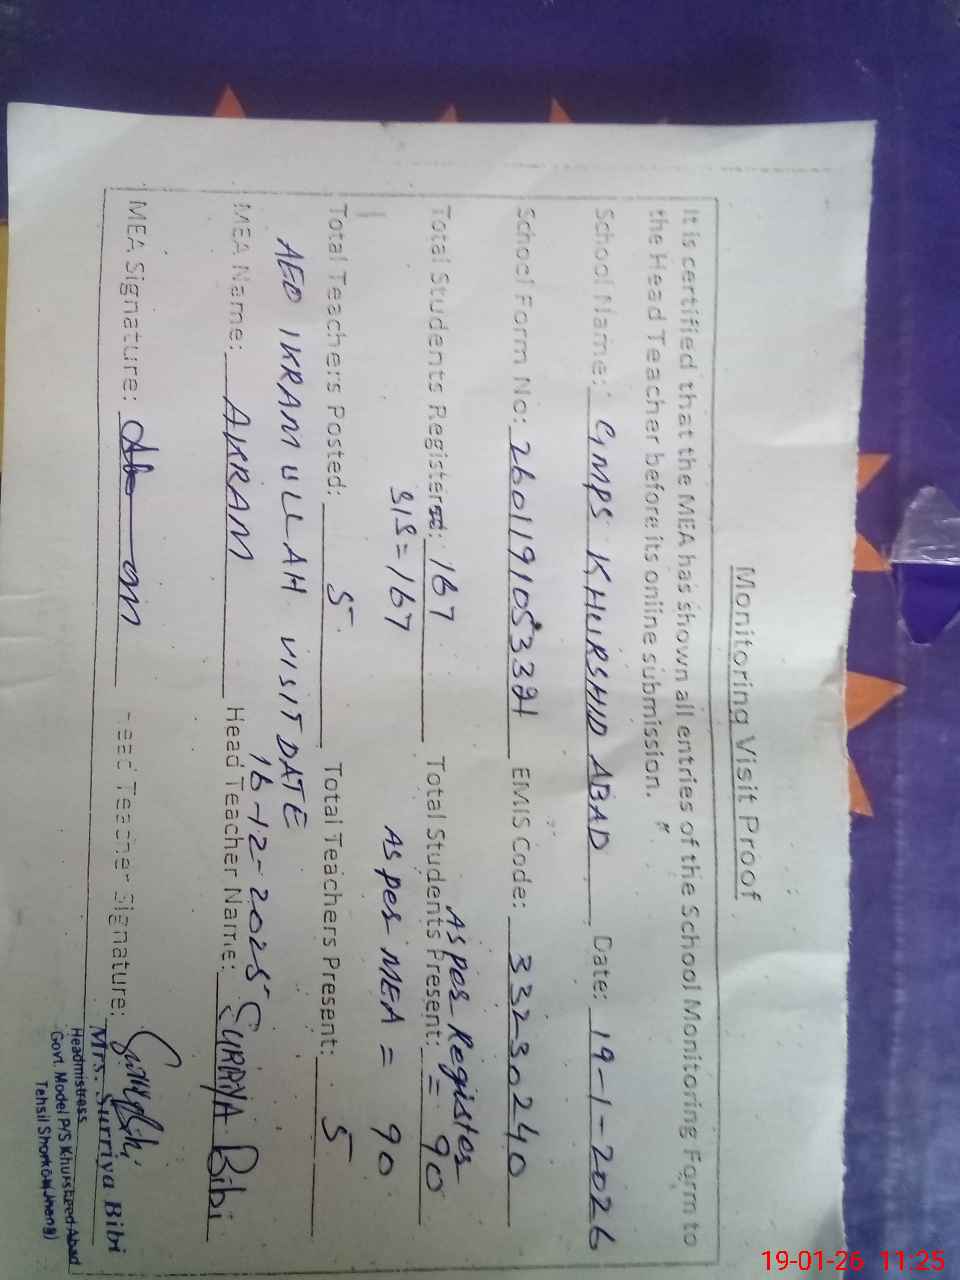 Monitoring Visit Proof
It is certified that the MEA has shown all entries of the School Monitoring Form to
the Head Teacher before its online submission.
School Name: GMPS KHURSHID ABAD Date: 19-1-2026
School Form No: 26011910533 EMIS Code: 33230240
As per Register
Total Students Registered: 167 Total Students Present: = 90
SIS = 167 As per MEA = 90
Total Teachers Posted: 5 Total Teachers Present: 5
AEO IKRAM ULLAH VISIT DATE
16-12-2025
MEA Name: AKRAM Head Teacher Name: SURAYA Bibi
MEA Signature: Head Teacher Signature:
Mrs. Surriya Bibi
Headmistress
Govt. Model P/S Khursheed Abad
Tehsil Shorkot (Jhang)
19-01-26 11:25